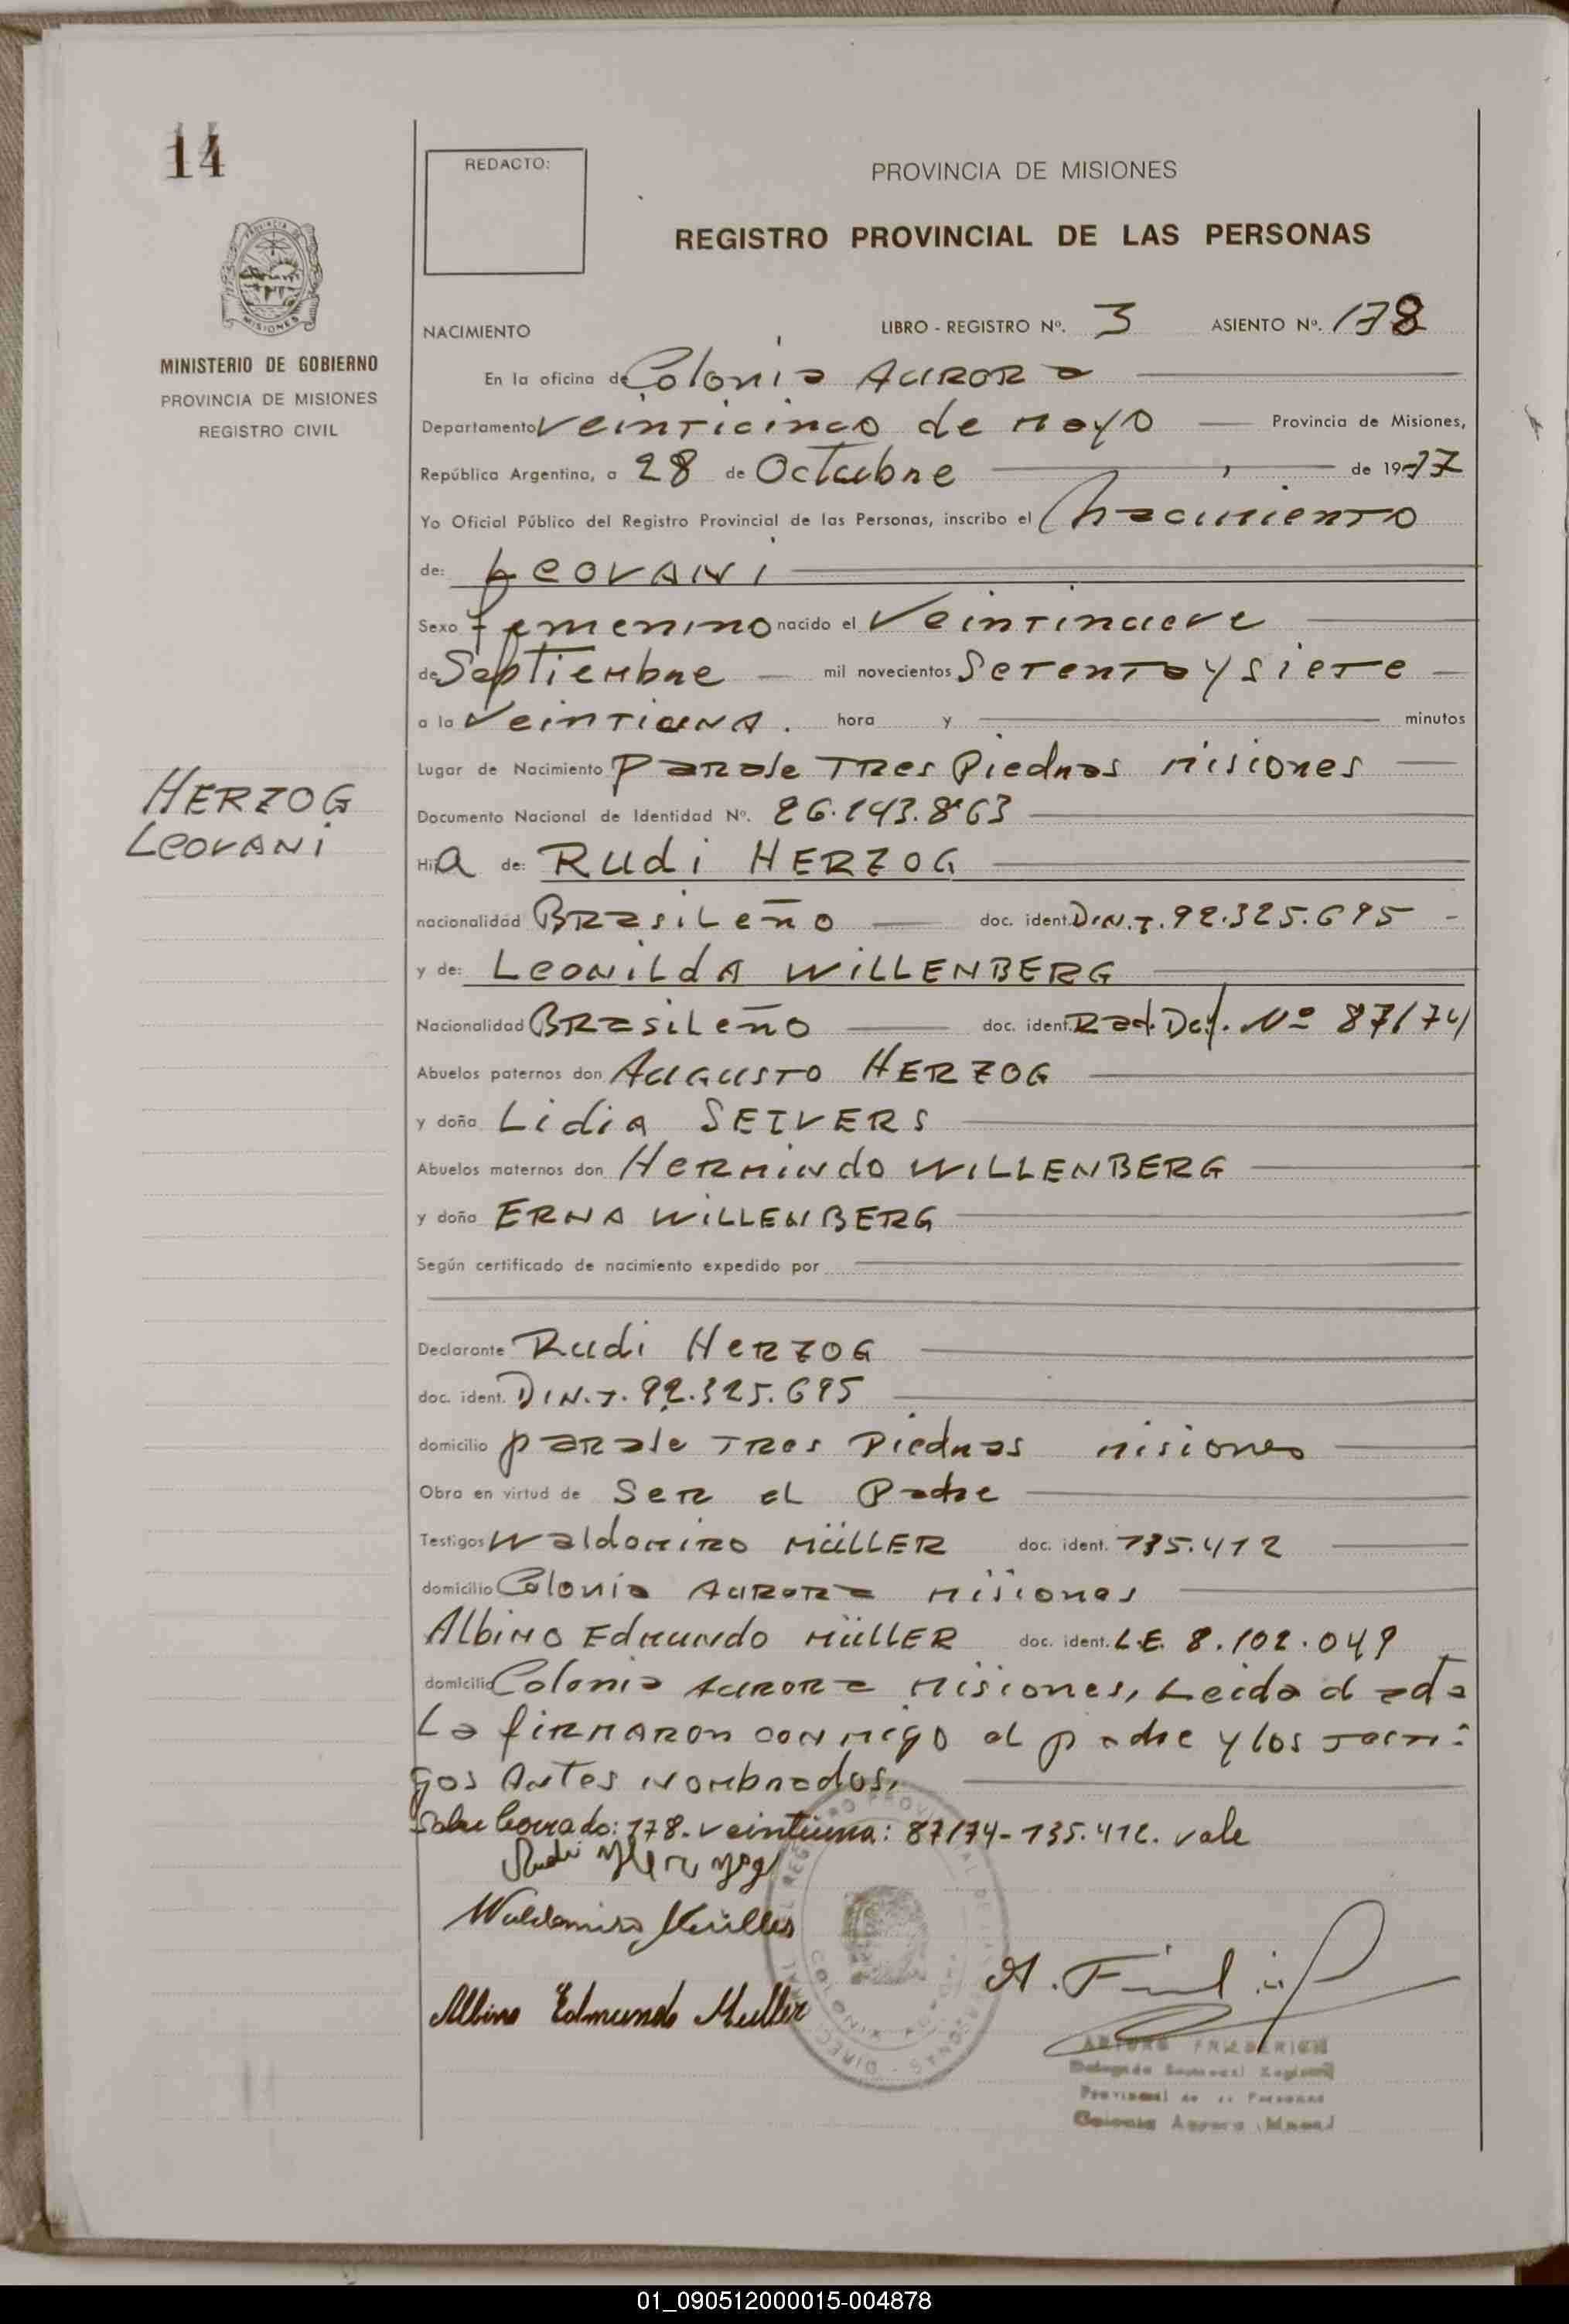 14
REDACTO:
PROVINCIA DE MISIONES
REGISTRO PROVINCIAL DE LAS PERSONAS
MISIONES
MINISTERIO DE GOBIERNO
PROVINCIA DE MISIONES
REGISTRO CIVIL
NACIMIENTO LIBRO - REGISTRO Nº. 3 ASIENTO Nº. 178
En la oficina de Colonia AURORA
Departamento veinticinco de Mayo Provincia de Misiones,
República Argentina, a 28 de Octubre de 1977
Yo Oficial Público del Registro Provincial de las Personas, inscribo el Nacimiento
de: LEOVANI
Sexo femenino nacido el Veintinueve
de Septiembre mil novecientos Setenta y siete
a la Veintiuna. hora y minutos
Lugar de Nacimiento Paraje Tres Piedras Misiones
HERZOG
LEOVANI
Documento Nacional de Identidad Nº. 26.143.863
Hija de: Rudi HERZOG
nacionalidad Brasileño doc. ident. D.N.I. 92.325.695
y de: Leonilda WILLENBERG
Nacionalidad Brasileño doc. ident. Rad. Def. Nº 87/74
Abuelos paternos don Augusto HERZOG
y doña Lidia SEIVERS
Abuelos maternos don Hermindo WILLENBERG
y doña ERNA WILLENBERG
Según certificado de nacimiento expedido por
Declarante Rudi HERZOG
doc. ident. D.N.I. 92.325.695
domicilio paraje Tres Piedras Misiones
Obra en virtud de Ser el Padre
Testigos Waldomiro MüLLER doc. ident. 735.412
domicilio Colonia Aurora Misiones
Albino Edmundo MüLLER doc. ident. L.E. 8.102.049
domicilio Colonia Aurora Misiones, Leida el acta
La firmaron conmigo el padre y los testi
gos Antes nombrados.
Sobre borrado: 178. veintiuna: 87/74- 735.412. vale
Rudi Herzog
Waldomiro Müller
Albino Edmundo Muller
ARTURO FRIEDERICH
Delegado Seccional Registro
Provincial de las Personas
Colonia Aurora
01_090512000015-004878